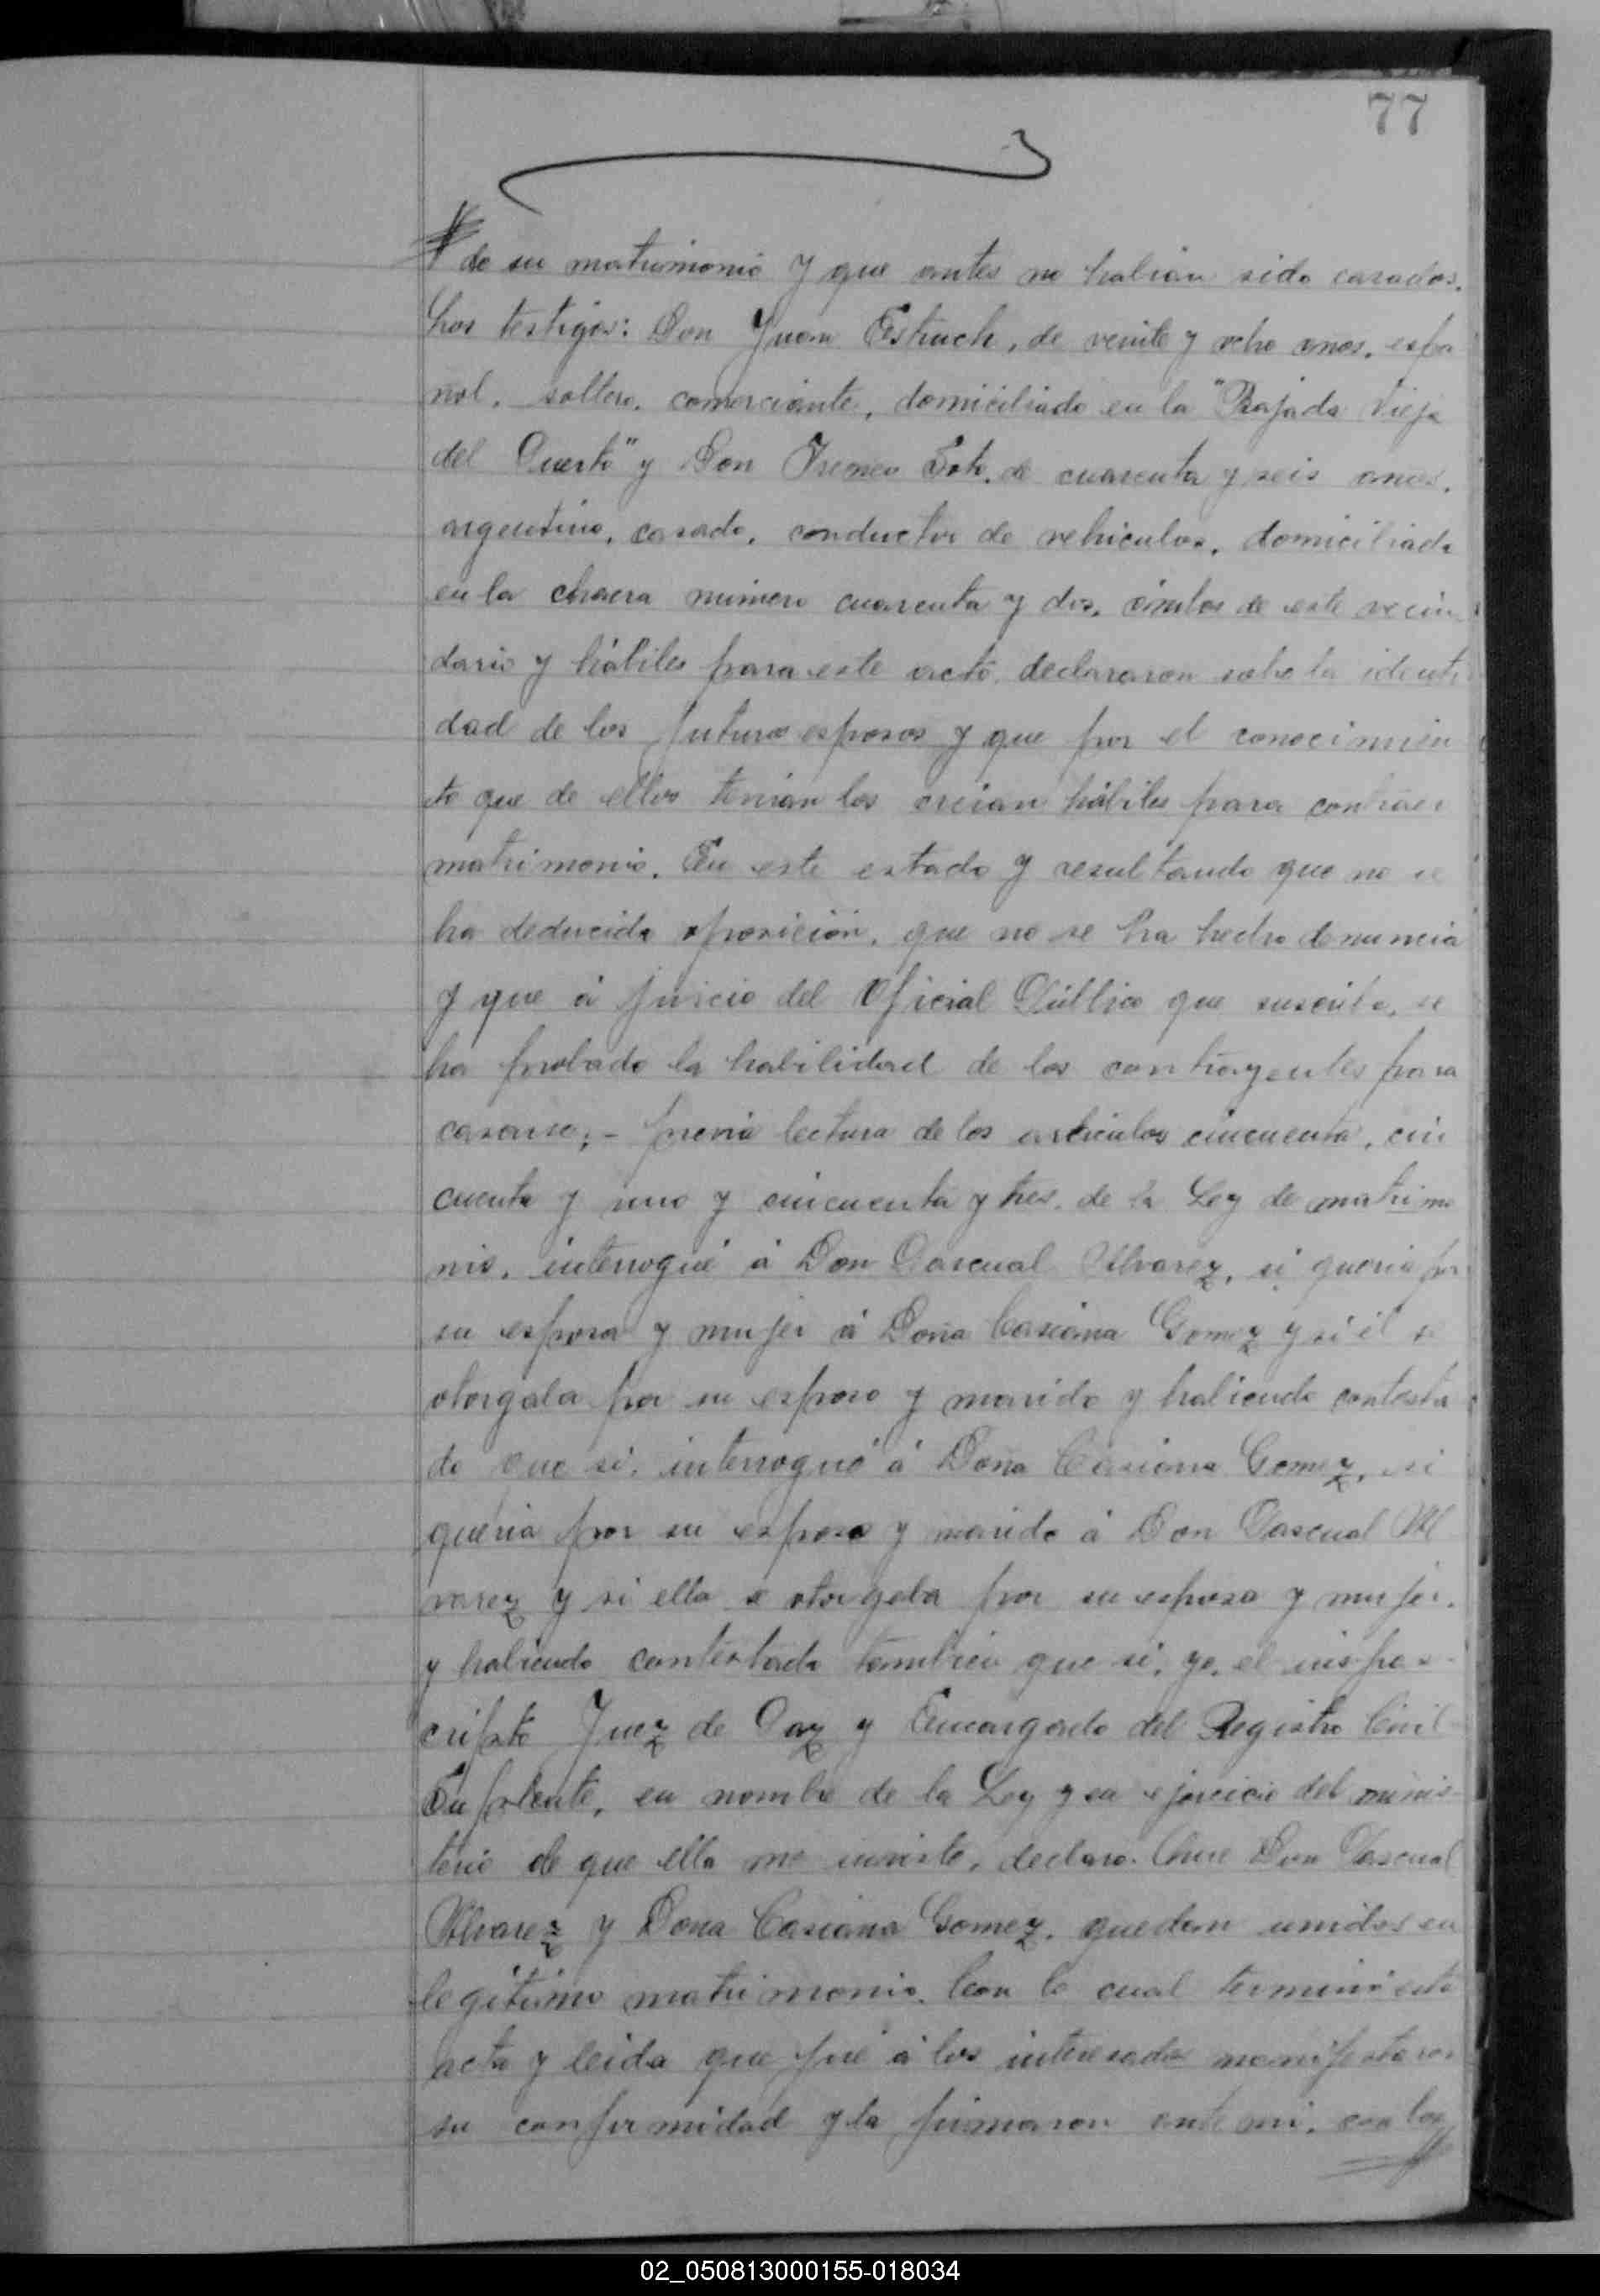 77
de su matrimonio y que antes no habian sido casados.
Los testigos: Don Juan Estruch, de veinte y ocho años, espa
ñol, soltero, comerciante, domiciliado en la "Bajada Vieja
del Puerto" y Don Ireneo Soto, de cuarenta y seis años,
argentino, casado, conductor de vehiculos, domiciliado
en la chacra número cuarenta y dos, ámbos de este vecin
dario y hábiles para este acto, declararon sobre la identi
dad de los futuros esposos y que por el conocimien
to que de ellos tenian los creian hábiles para contraer
matrimonio. En este estado y resultando que no se
ha deducido oposición, que no se ha hecho denuncia
y que á juicio del Oficial Público que suscribe, se
ha probado la habilidad de los contrayentes para
casarse; - prévia lectura de los articulos cincuenta, cin
cuenta y uno y cincuenta y tres, de la Ley de matrimo
nio, interrogué á Don Pascual Alvarez, si queria por
su esposa y mujer á Doña Casiana Gomez y si él se
otorgaba por su esposo y marido y habiendo contesta
do que si, interrogué á Doña Casiana Gomez, si
queria por su esposo y marido á Don Pascual Al
varez y si ella se otorgaba por su esposa y mujer,
y habiendo contestado tambien que si, yo, el infras-
cripto Juez de Paz y Encargado del Registro Civil
Suplente, en nombre de la Ley y en ejercicio del minis-
terio de que ella me inviste, declaro: Que Don Pascual
Alvarez y Doña Casiana Gomez, quedan unidos en
legítimo matrimonio. Con lo cual terminó esta
acta y leida que fué á los interesados manifestaron
su conformidad y la firmaron ante mi, con los
02_050813000155-018034